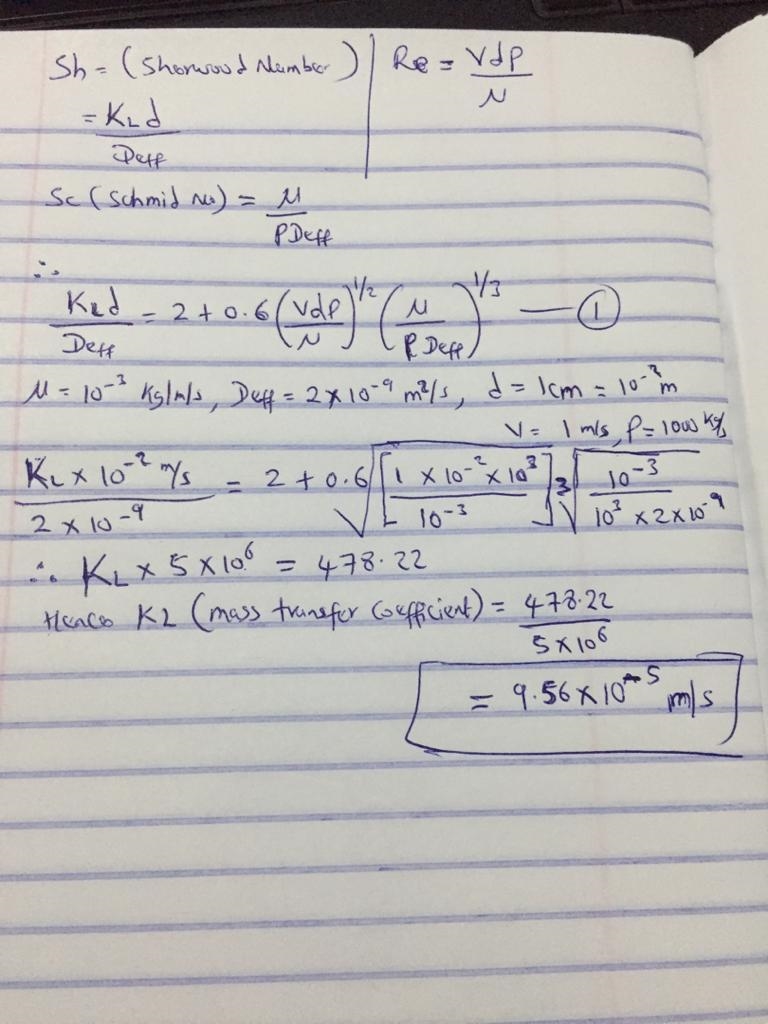 Sh = (Sherwood Number) | Re = Vdρ/μ
= KL d/Deff
Sc (Schmid No) = μ/ρDeff
∴
KLd/Deff = 2 + 0.6 (Vdρ/μ)^1/2 (μ/ρDeff)^1/3 — ①
μ = 10^-3 Kg/m/s, Deff = 2×10^-9 m²/s, d = 1cm = 10^-2 m
V = 1 m/s, ρ = 1000 kg/
KL × 10^-2 m/s / 2 × 10^-9 = 2 + 0.6 √[1 × 10^-2 × 10^3 / 10^-3] ∛(10^-3 / 10^3 × 2×10^-9)
∴ KL × 5×10^6 = 478.22
Hence KL (mass transfer coefficient) = 478.22 / 5×10^6
= 9.56×10^-5 m/s